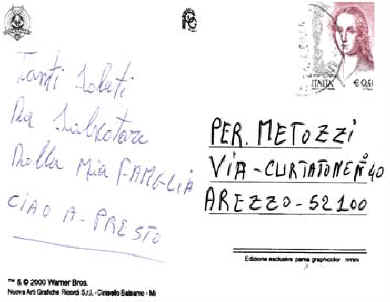 Tanti Saluti
Da Salvatore
Della Mia FAMGLIA
CIAO A-PRESTO
ITALIA € 0,41
PER. METOZZI
VIA-CURTATONE Nº40
AREZZO-52100
Edizione esclusiva parma graphicolor
™ & © 2000 Warner Bros.
Nuova Arti Grafiche Ricordi S.r.l. - Cinisello Balsamo - Mi